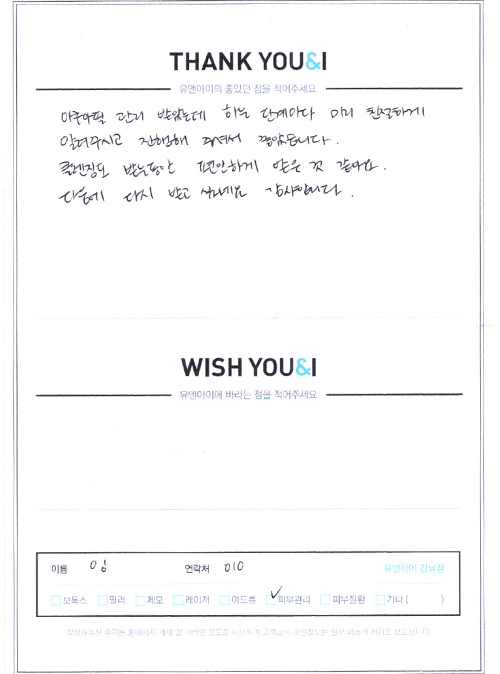 THANK YOU&I
유앤아이의 좋았던 점을 적어주세요
아쿠아필 관리 받았는데 하는 단계마다 미리 친절하게
알려주시고 진행해 주셔서 좋았습니다.
클렌징도 받는동안 편안하게 받은 것 같아요.
다음에 다시 받고 싶네요 감사합니다.
WISH YOU&I
유앤아이에 바라는 점을 적어주세요
이름 연락처 010 유앤아이 강남점
보톡스 필러 제모 레이저 여드름 ✓ 피부관리 피부질환 기타 ( )